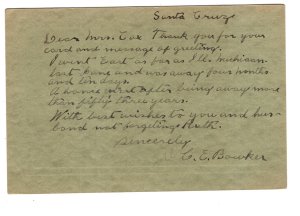 Santa Cruz
Dear Mrs. Cox Thank you for your
card and message of greeting.
I went East as far as Ill. Michican
last June and was away four months
and ten days.
A novel visit after being away more
than fifty three years.
With best wishes to you and hus-
band not forgeting Ruth.
Sincerely
C. E. Bowker